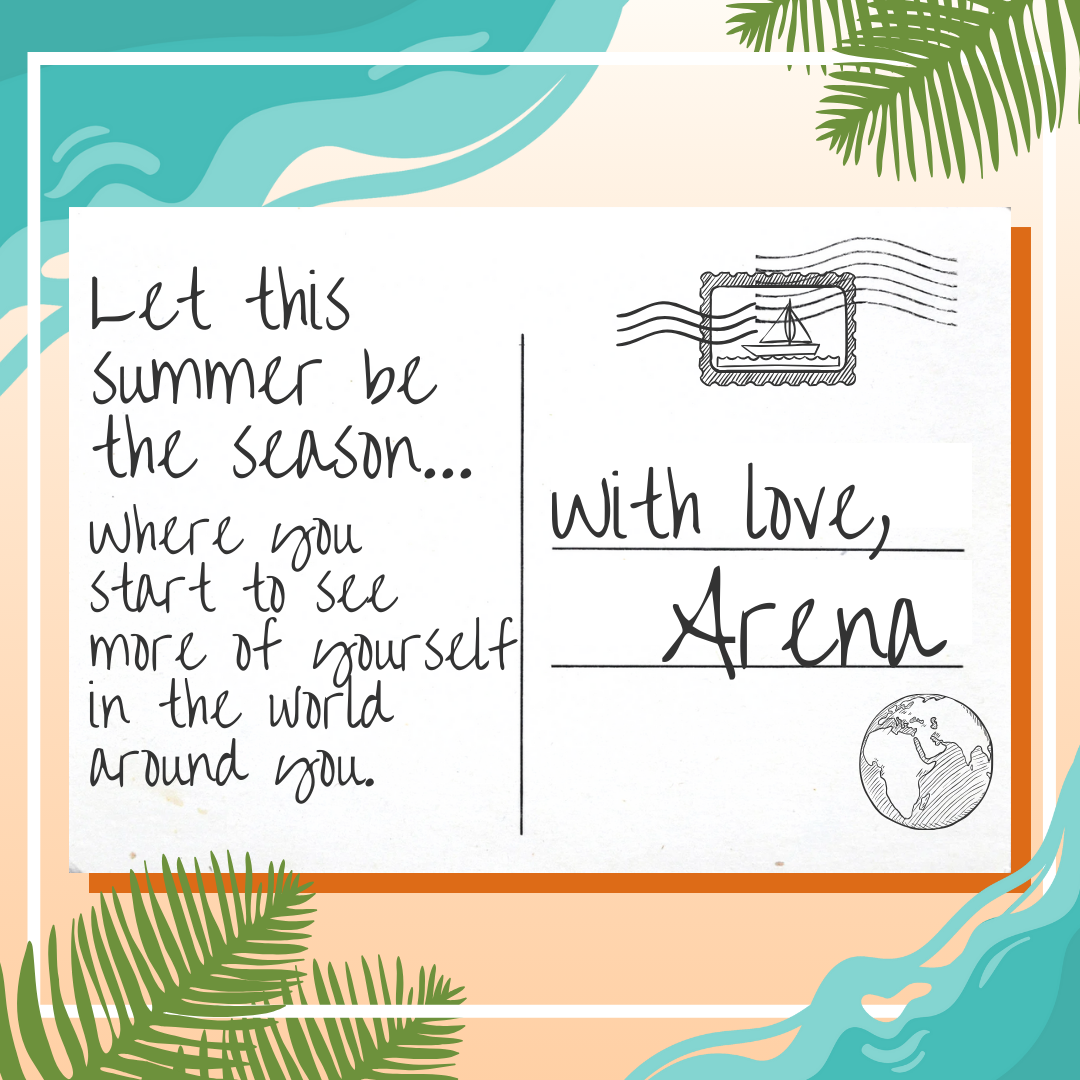 Let this
summer be
the season...
where you
start to see
more of yourself
in the world
around you.
with love,
Arena